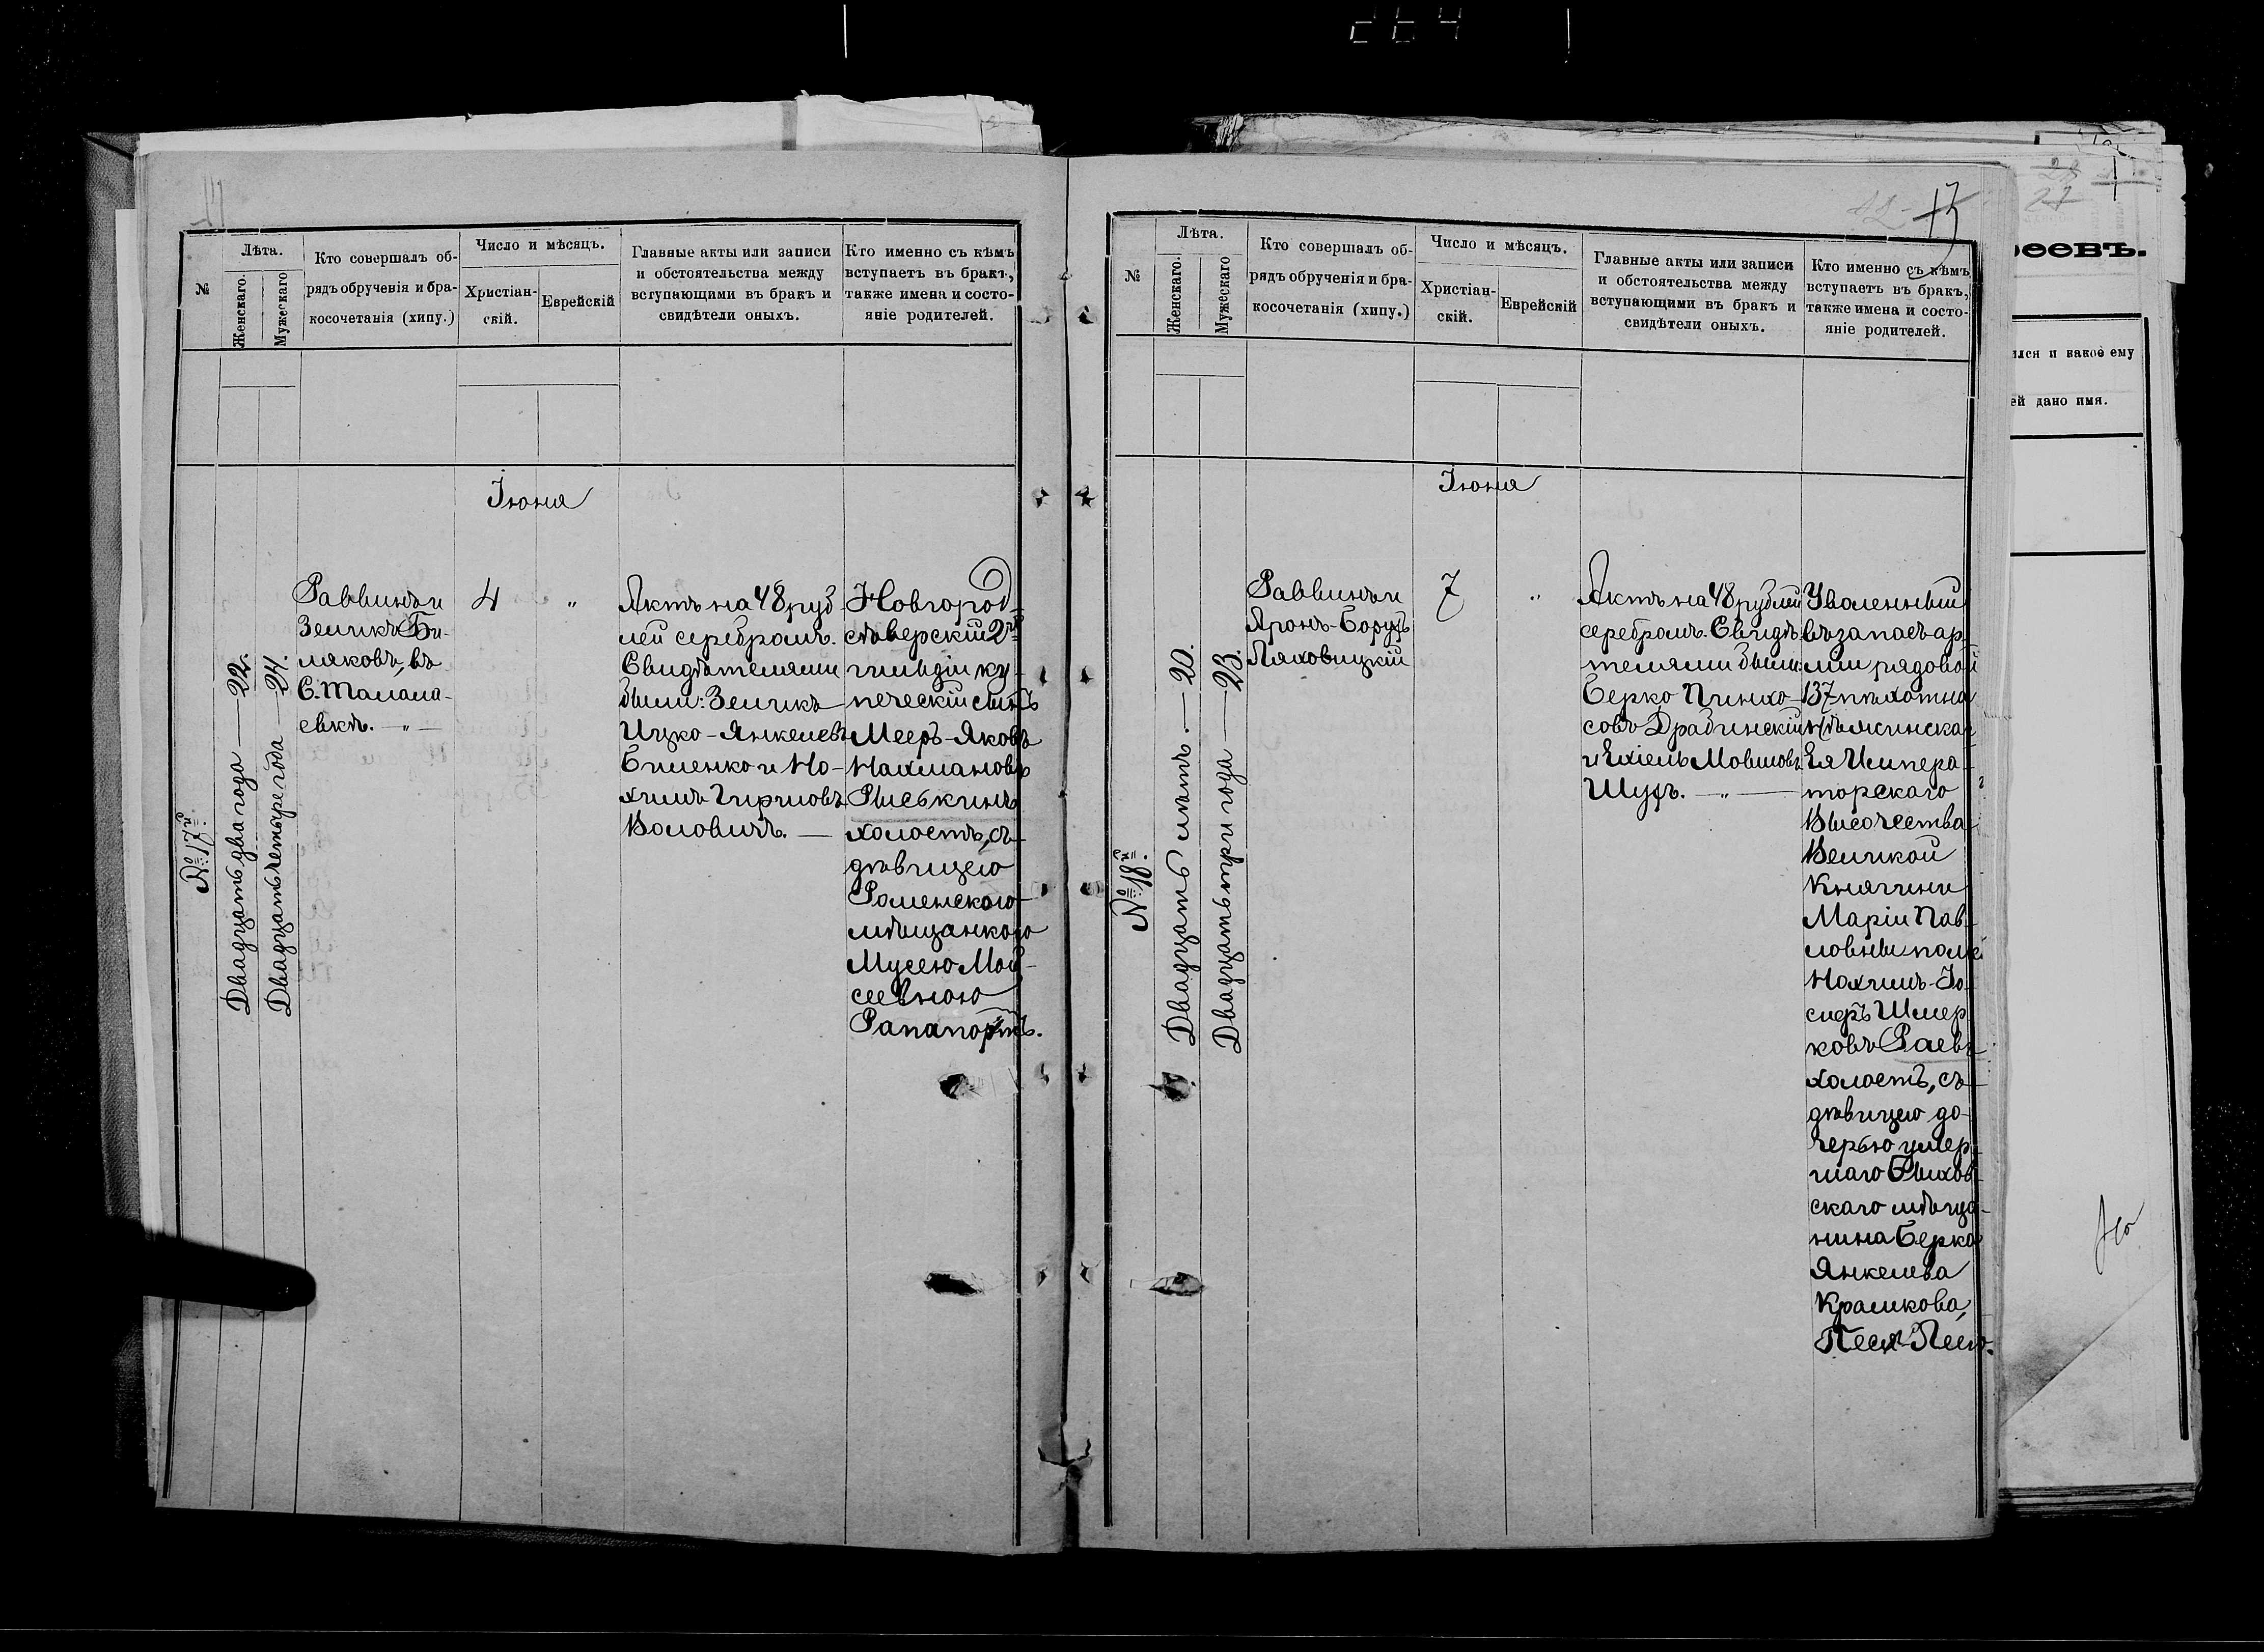 264
№
Лѣта.
Женскаго.
Мужескаго
Кто совершалъ об-
рядъ обрученія и бра-
косочетанія (хипу.)
Число и мѣсяцъ.
Христіан-
скій.
Еврейскій
Главные акты или записи
и обстоятельства между
вступающими въ бракъ и
свидѣтели оныхъ.
Кто именно съ кѣмъ
вступаетъ въ бракъ,
также имена и состо-
яніе родителей.
Іюня
№ 17й.
Двадцать два года — 22.
Двадцать четыре года — 24.
Раввинъ и
Зеликъ Би-
ляковъ, въ
С. Талала-
евкѣ. — „ —
4
„
Актъ на 48 руб-
лей серебромъ.
Свидѣтелями
были: Зеликъ
Ицко-Янкелевъ
Биленко и Но-
химъ Гиршовъ
Воловикъ. —
Новгород-
сѣверскій 2й
гильдіи ку-
печескій сынъ
Мееръ-Яковъ
Нахмановъ
Рыськинъ
холостъ, съ
дѣвицею
Роменскою
мѣщанкою
Мусею Мой-
сеевною
Рапапортъ.
12
13
№
Лѣта.
Женскаго.
Мужескаго
Кто совершалъ об-
рядъ обрученія и бра-
косочетанія (хипу.)
Число и мѣсяцъ.
Христіан-
скій.
Еврейскій
Главные акты или записи
и обстоятельства между
вступающими въ бракъ и
свидѣтели оныхъ.
Кто именно съ кѣмъ
вступаетъ въ бракъ,
также имена и состо-
яніе родителей.
Іюня
№ 18й.
Двадцать лѣтъ. — 20.
Двадцать три года — 23.
Раввинъ и
Аронъ-Борухъ
Ляховицкій
7
„
Актъ на 48 рублей
серебромъ. Свидѣ-
телями были:
Берко Пинхо-
совъ Драбинскій
и Ехіель Мовшовъ
Шуфъ. — „ —
Уволенный
въ запасъ ар-
міи рядовой
137 пѣхотна
Нѣжинска
Ея Импера-
торскаго
Высочества
Великой
Княгини
Маріи Пав-
ловны полка
Нохимъ-Іо-
сифъ Шмер-
ковъ Раевъ
холостъ, съ
дѣвицею до-
черью умер-
шаго Быхов-
скаго мѣща-
нина Берка
Янкелева
Крамкова,
Песя-Лею.
27
еевъ.
ился и какое ему
ей дано имя.